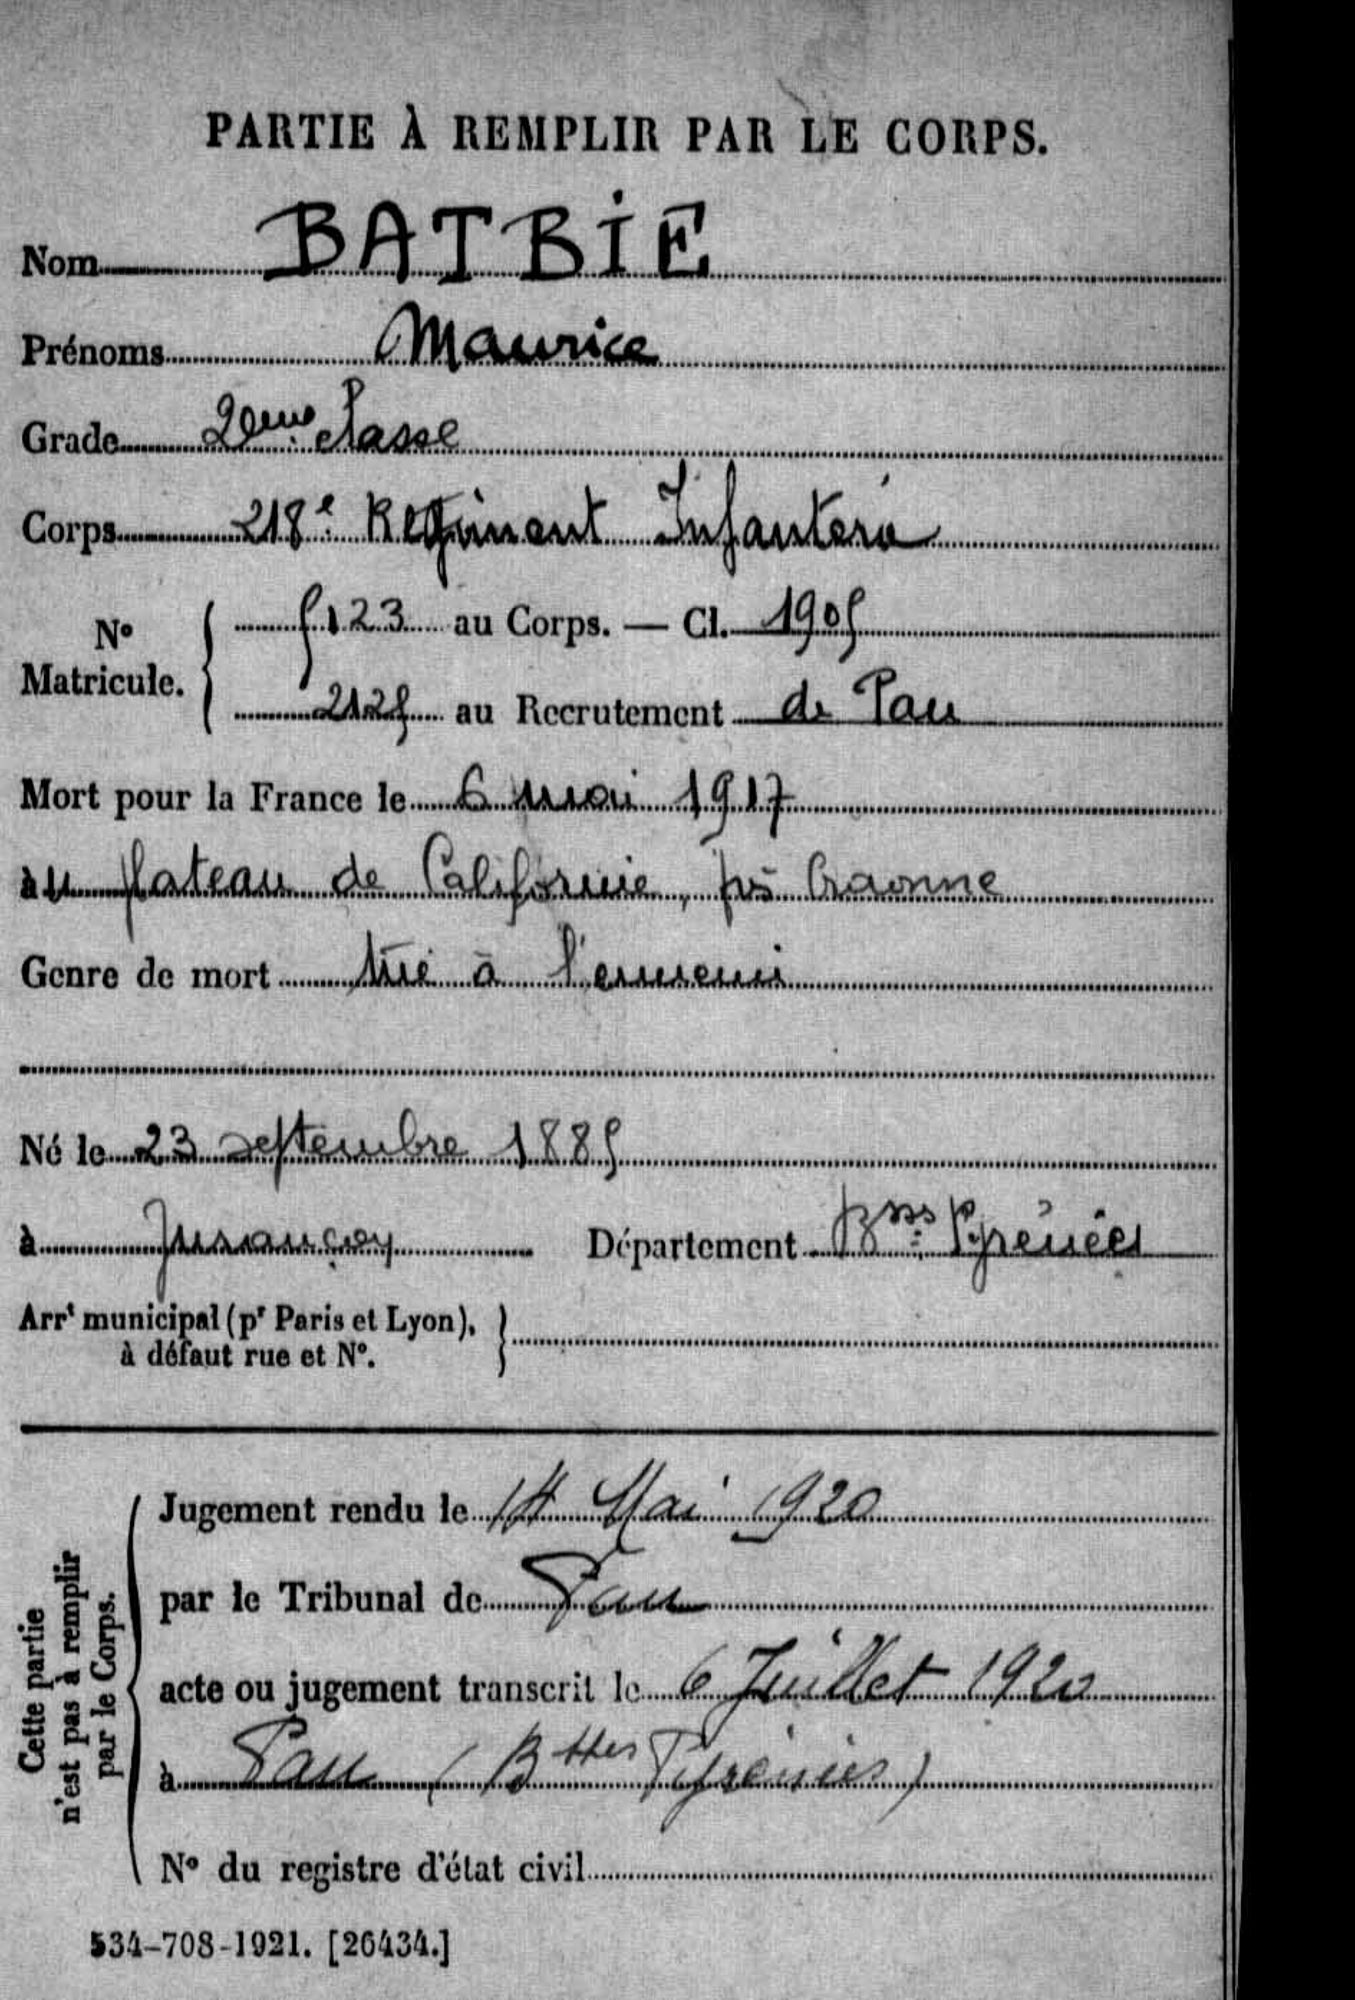 PARTIE À REMPLIR PAR LE CORPS.
Nom BATBIE
Prénoms Maurice
Grade 2ème Classe
Corps 218e Régiment Infanterie
No Matricule. 5123 au Corps. — Cl. 1905
2125 au Recrutement de Pau
Mort pour la France le 6 mai 1917
au plateau de Californie, près Craonne
Genre de mort tué à l'ennemi
Né le 23 septembre 1885
à Jurançon Département Bsses Pyrénées
Arrt municipal (pr Paris et Lyon),
à défaut rue et No.
Cette partie
n'est pas à remplir
par le Corps.
Jugement rendu le 14 Mai 1920
par le Tribunal de Pau
acte ou jugement transcrit le 6 Juillet 1920
à Pau (Bttes Pyrénées)
No du registre d'état civil
534-708-1921. [26434.]